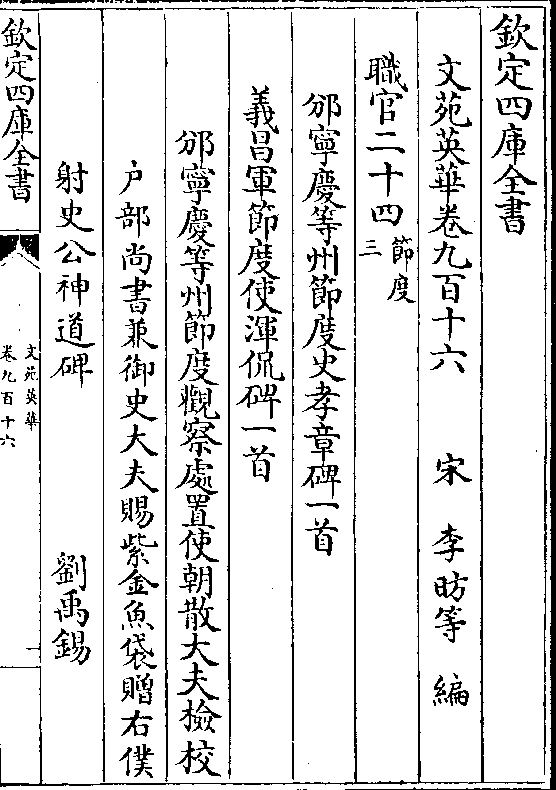 欽定四庫全書
文苑英華卷九百十六　宋　李昉等　編
職官二十四節度三
邠寧慶等州節度史孝章碑一首
義昌軍節度使渾侃碑一首
邠寧慶等州節度觀察處置使朝散大夫檢校
户部尚書兼御史大夫賜紫金魚袋贈右僕
射史公神道碑　劉禹錫
欽定四庫全書
文苑英華
卷九百十六
一